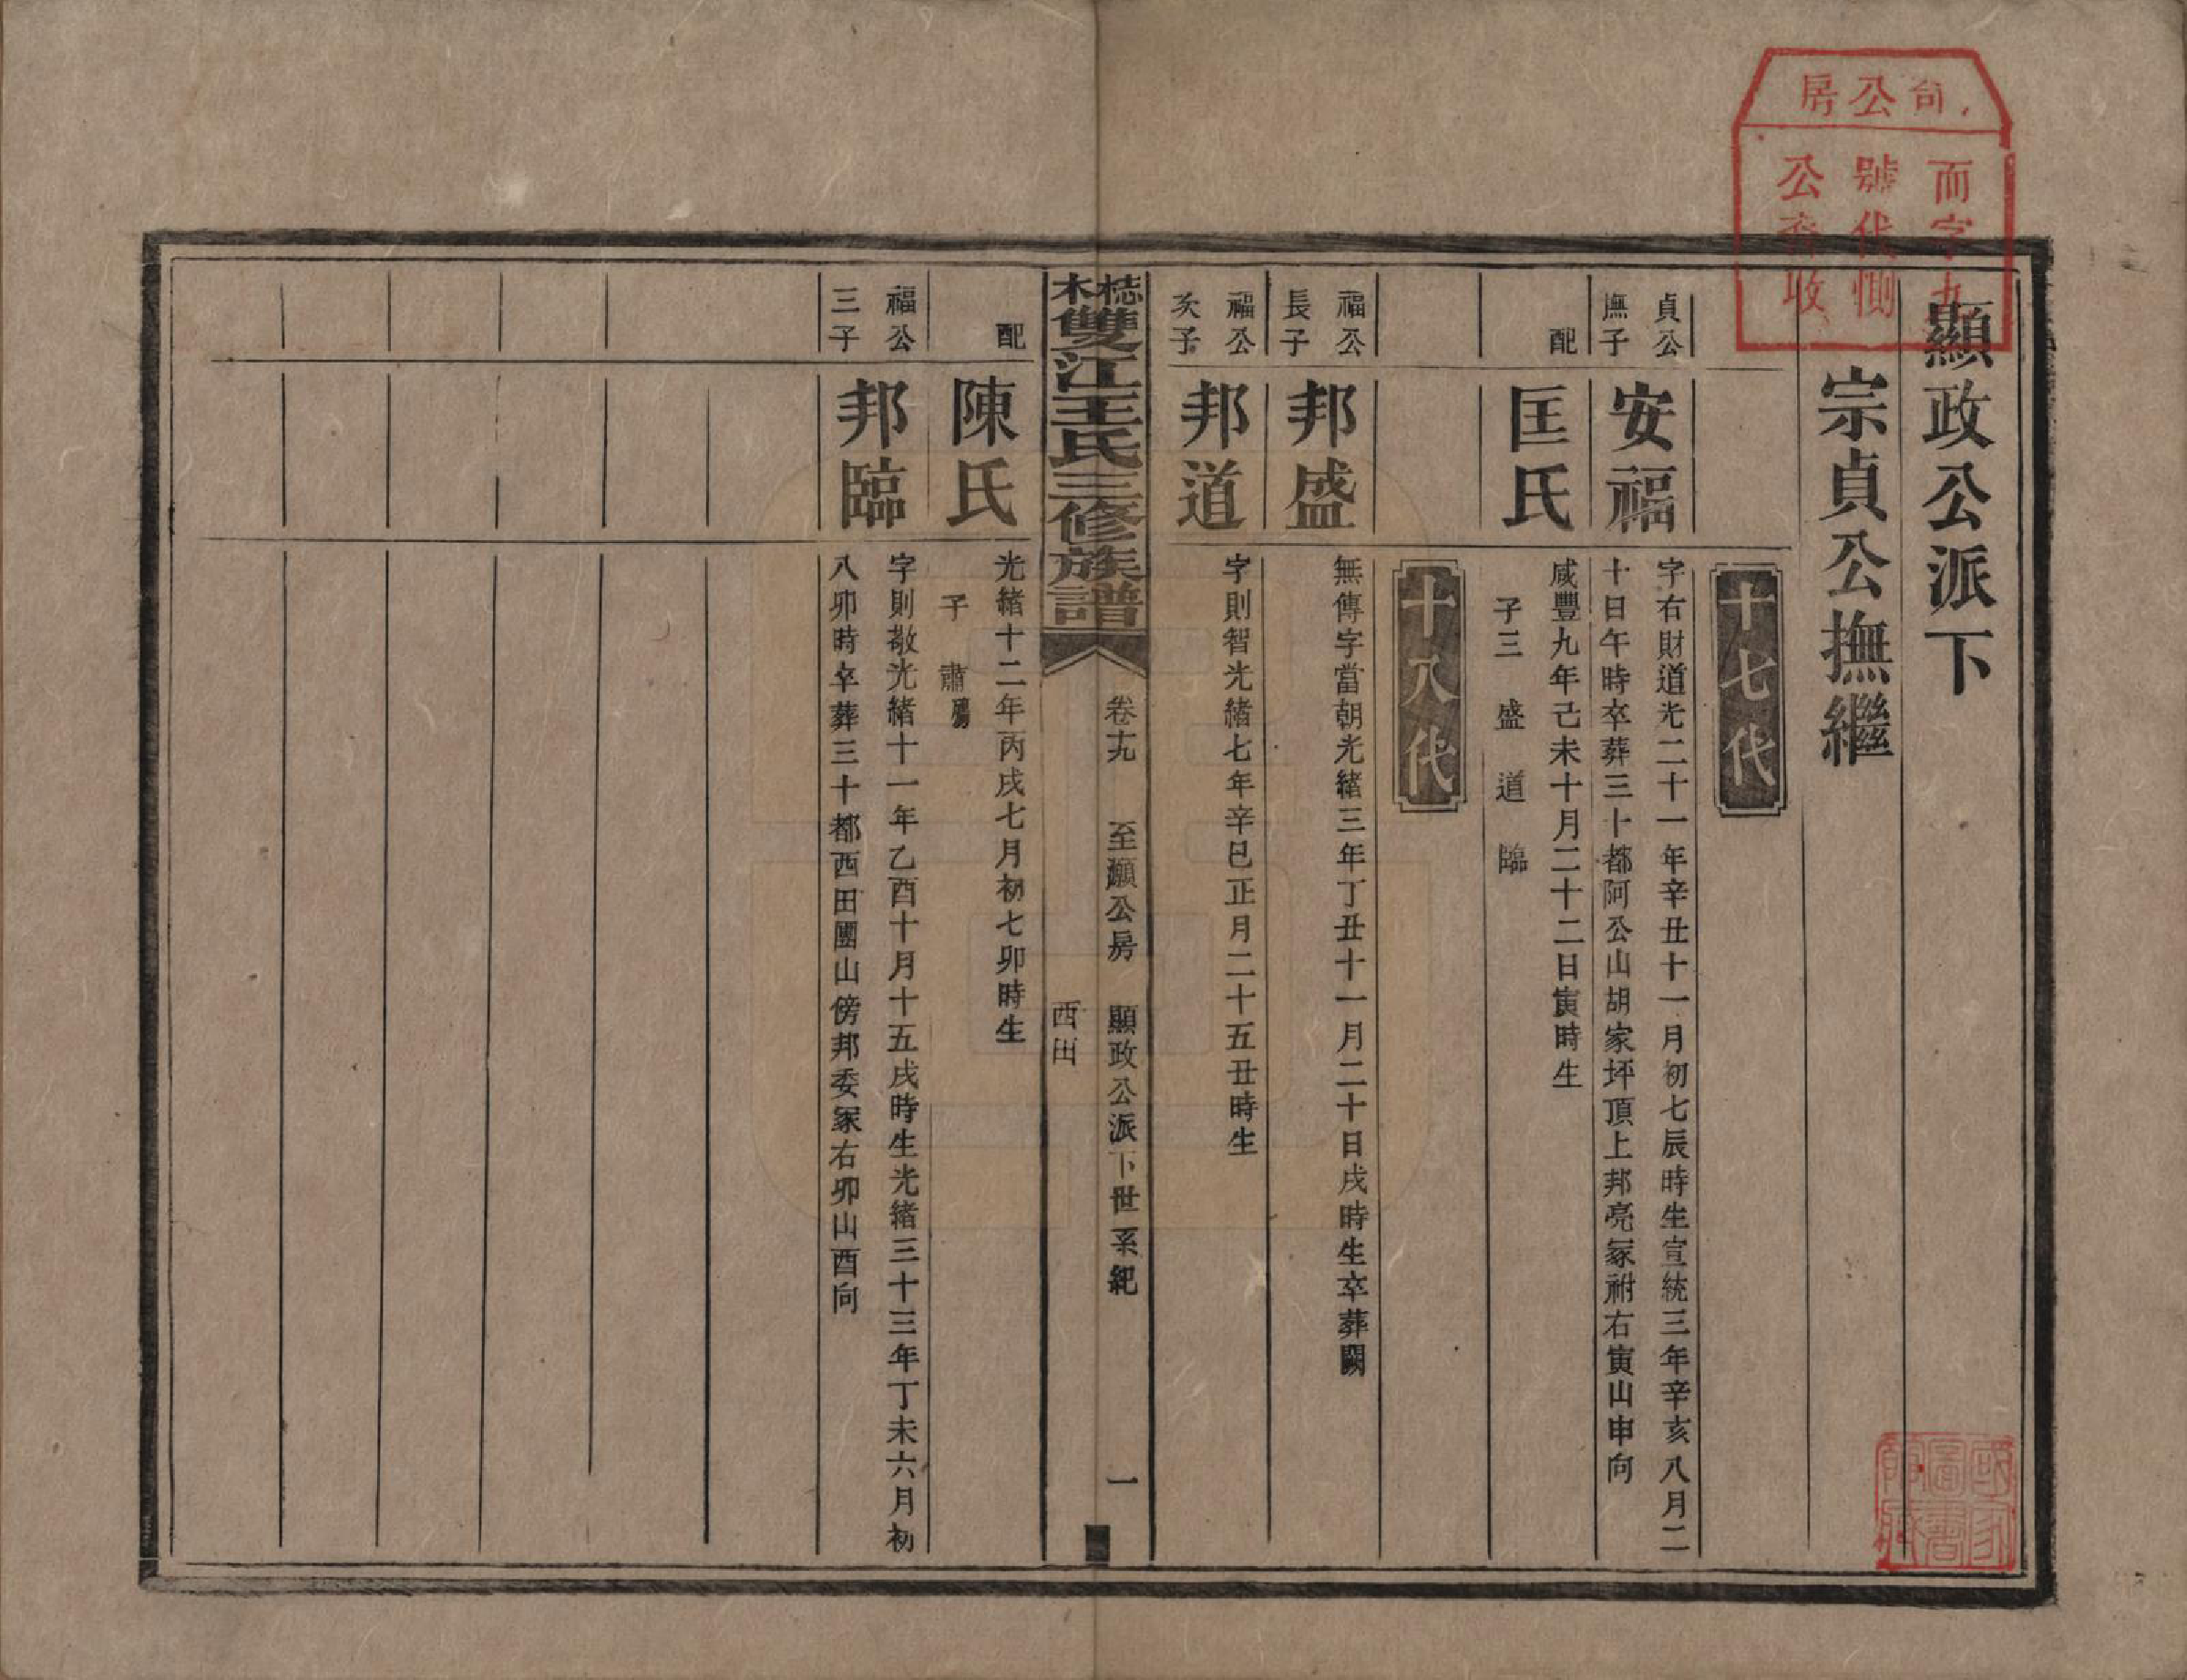 顯政公派下
宗貞公撫繼
十七代
貞公
撫子
安福
字右財道光二十一年辛丑十一月初七辰時生宣統三年辛亥八月二
十日午時卒葬三十都阿公山胡家坪頂上邦亮冢祔右寅山申向
配
匡氏
咸豐九年己未十月二十二日寅時生
子三 盛 道 臨
十八代
福公
長子
邦盛
無傳字當朝光緒三年丁丑十一月二十日戌時生卒葬闕
福公
次子
邦道
字則智光緒七年辛巳正月二十五丑時生
梽木雙江王氏三修族譜
卷十九 至灝公房 顯政公派下世系紀 一
西田
配
陳氏
光緒十二年丙戌七月初七卯時生
子 肅
福公
三子
邦臨
字則敬光緒十一年乙酉十月十五戌時生光緒三十三年丁未六月初
八卯時卒葬三十都西田團山傍邦委冢右卯山酉向
房公
而字九
號
公 收